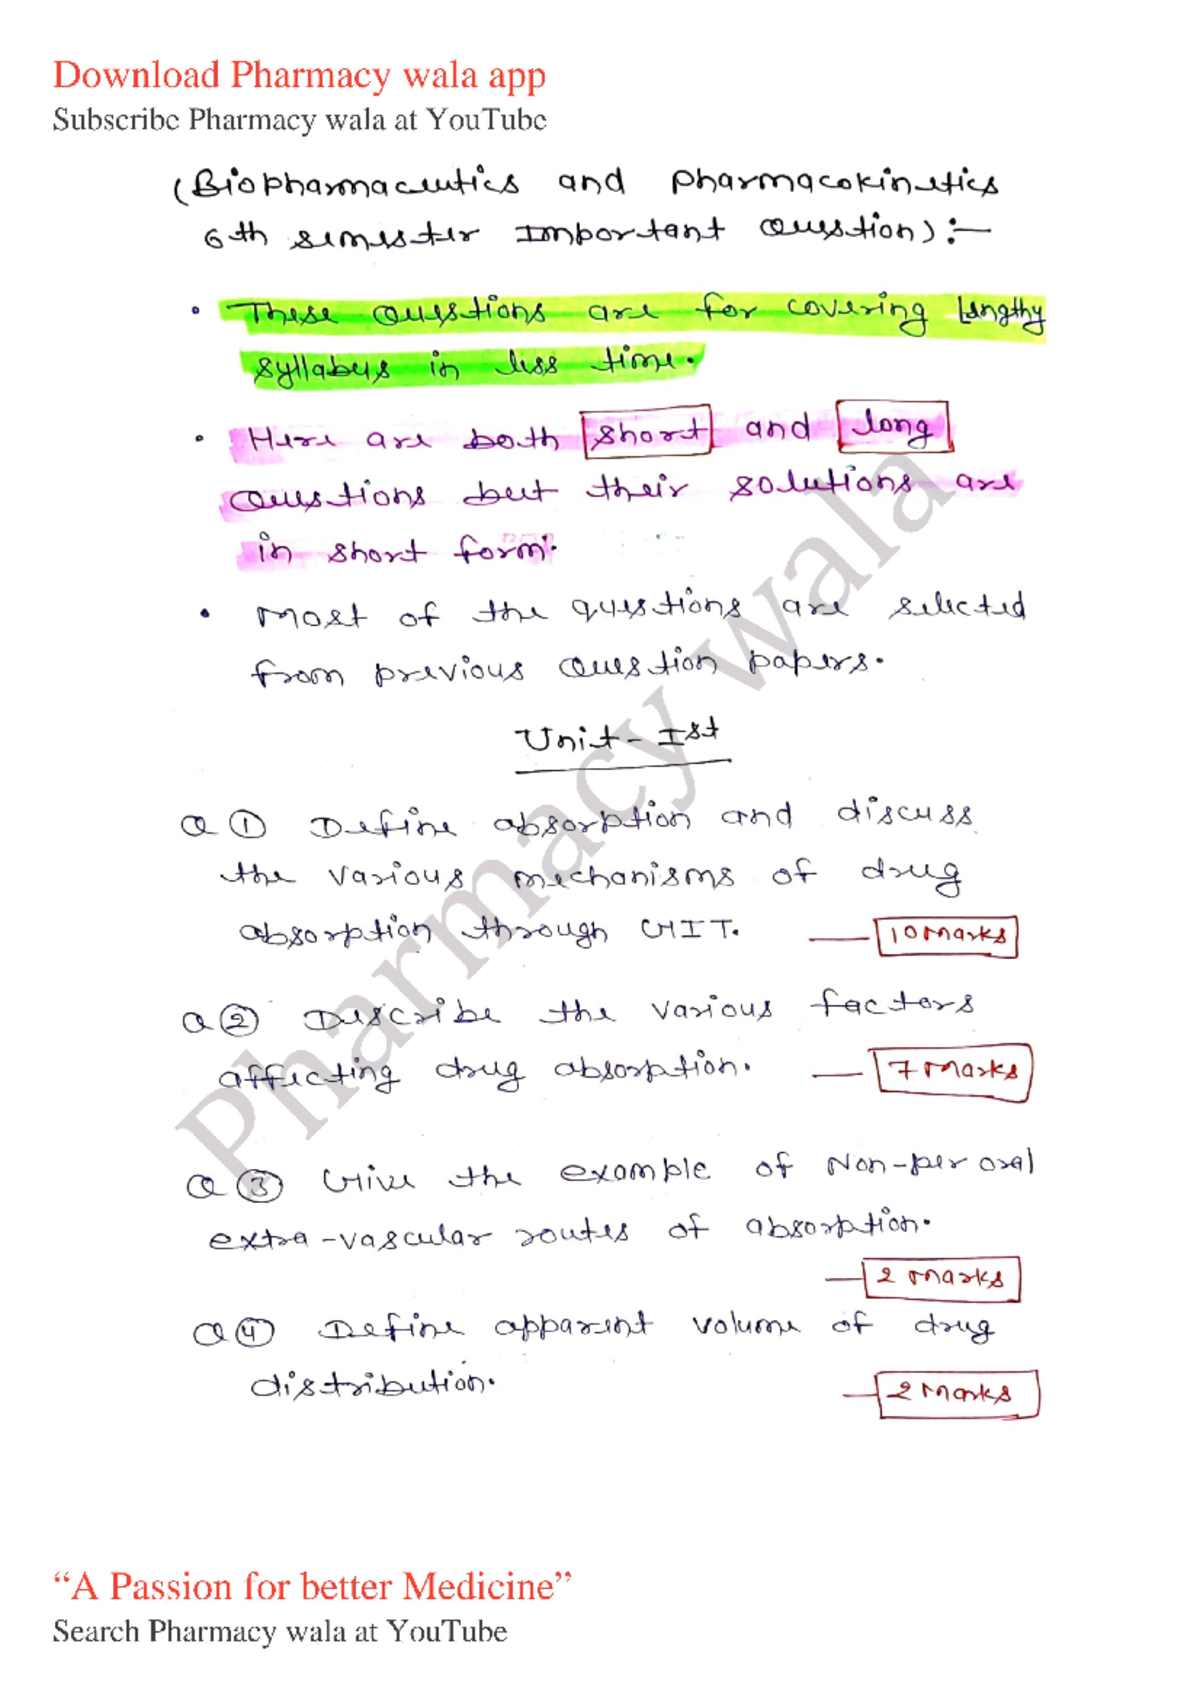 Download Pharmacy wala app
Subscribe Pharmacy wala at YouTube
(Biopharmaceutics and Pharmacokinetics
6th semester Important Question):-
• These Questions are for covering Lengthy
syllabus in less time.
• Here are both short and long
Questions but their solutions are
in short form.
• Most of the questions are selected
from previous Question papers.
Unit - Ist
Q ① Define absorption and discuss
the various mechanisms of drug
absorption through GIT. — 10 Marks
Q ② Describe the various factors
affecting drug absorption. — 7 Marks
Q ③ Give the example of Non-per oral
extra-vascular routes of absorption.
— 2 Marks
Q ④ Define apparent volume of drug
distribution. — 2 Marks
Pharmacy wala
“A Passion for better Medicine”
Search Pharmacy wala at YouTube